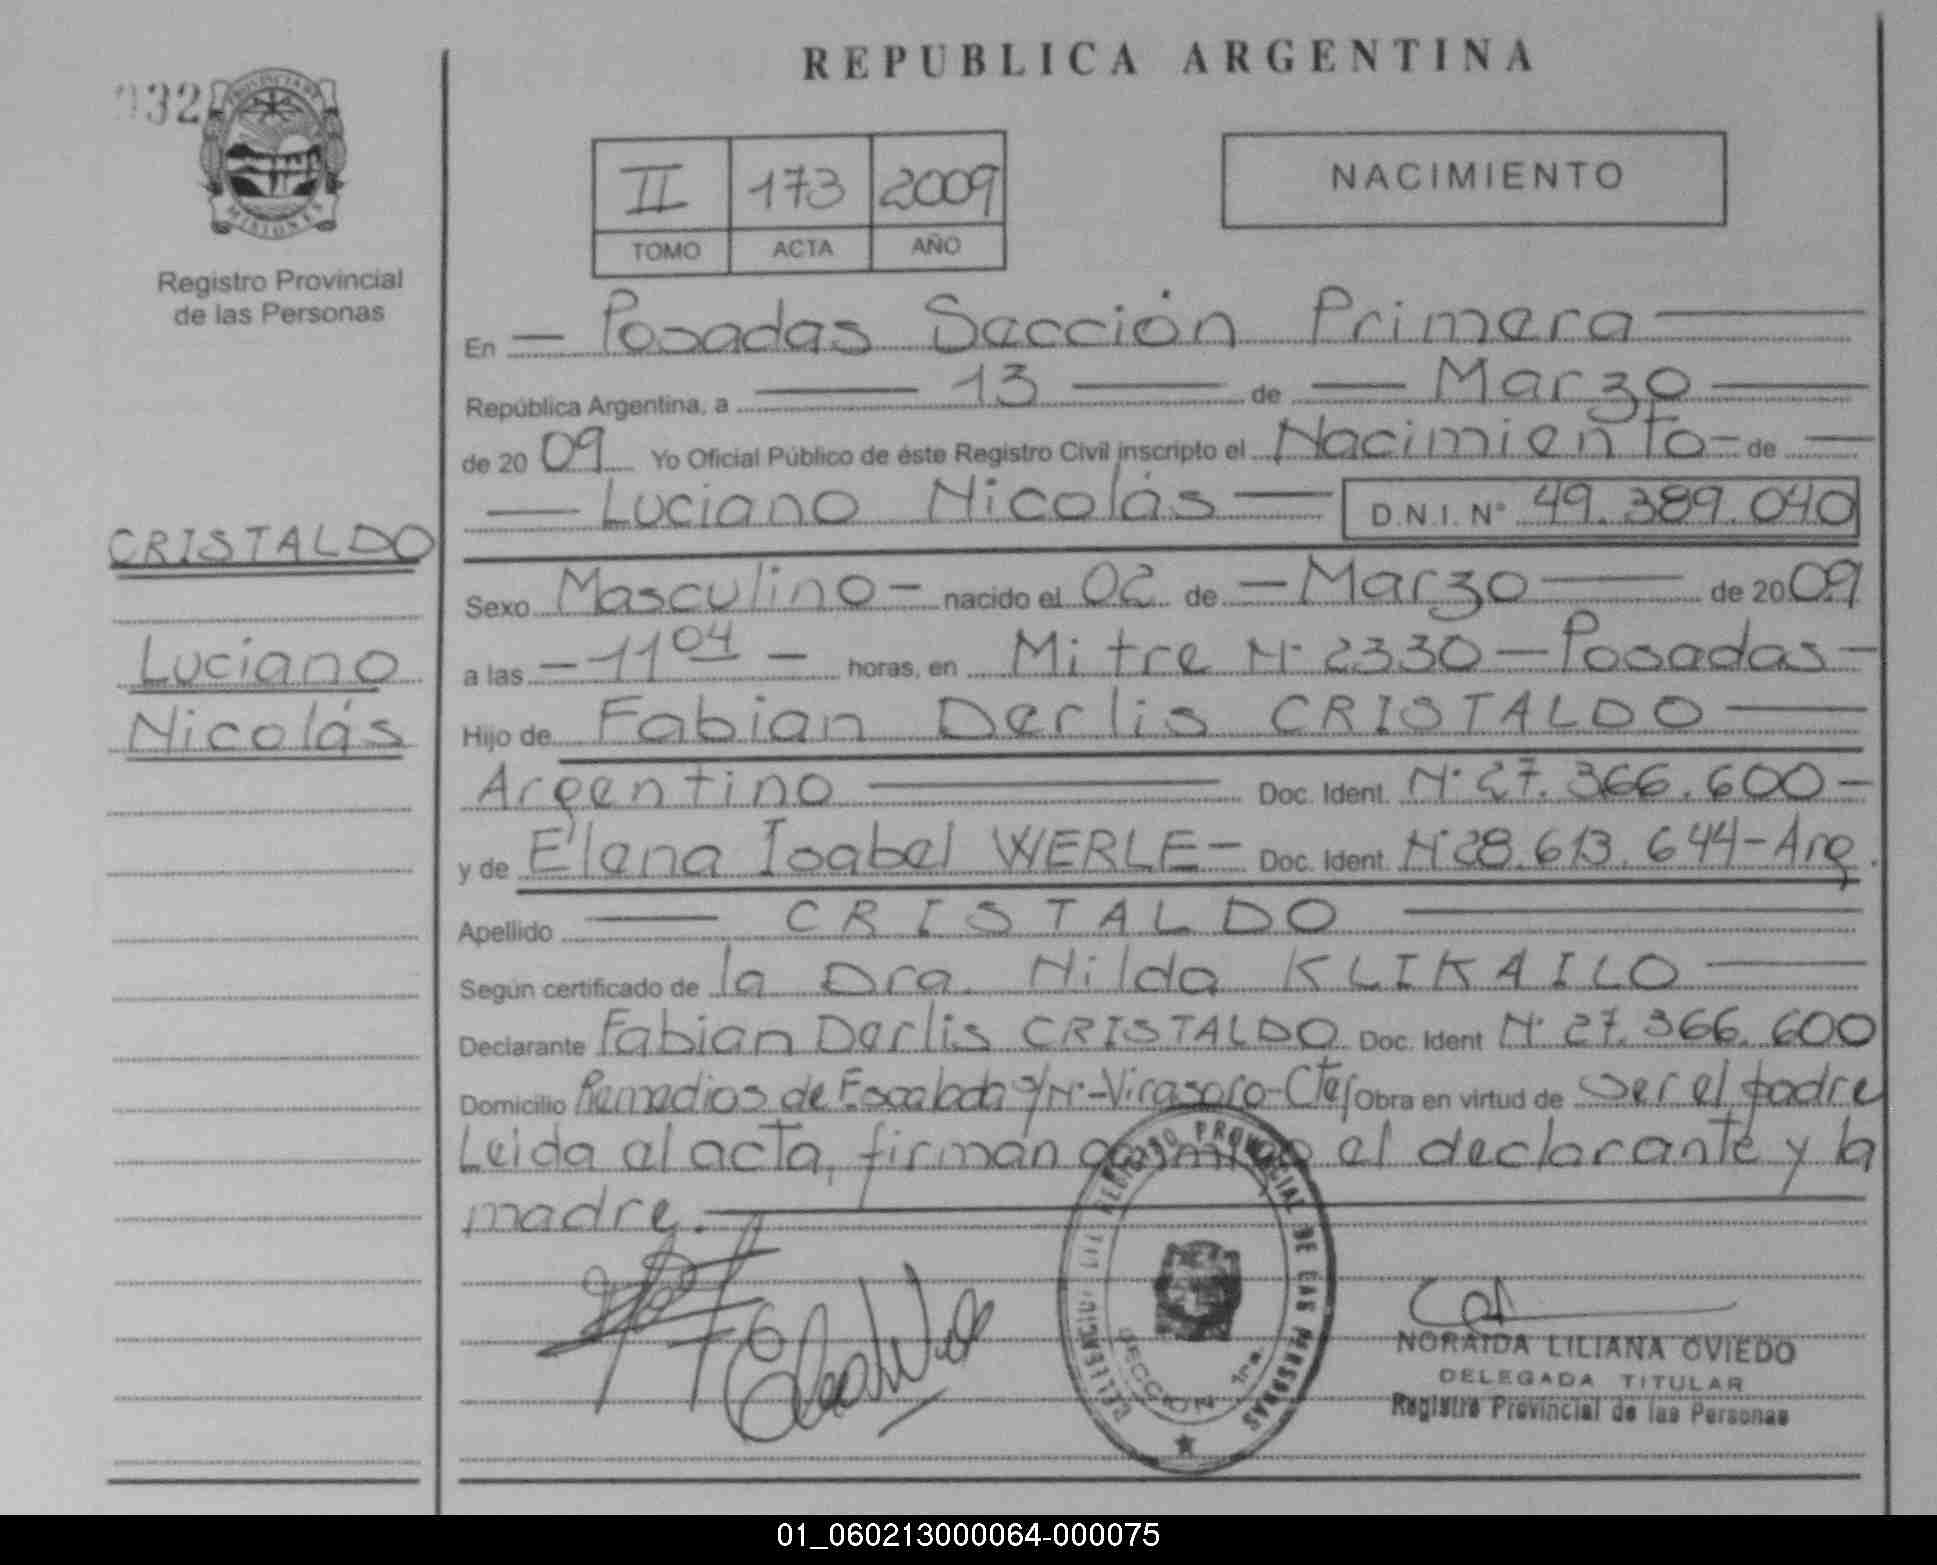 REPUBLICA ARGENTINA
032
PROVINCIA DE
MISIONES
Registro Provincial
de las Personas
II 173 2009
TOMO ACTA AÑO
NACIMIENTO
CRISTALDO
Luciano
Nicolás
En — Posadas Sección Primera —
República Argentina, a — 13 — de — Marzo —
de 20 09 Yo Oficial Público de éste Registro Civil inscripto el Nacimiento — de —
— Luciano Nicolás — D.N.I. N° 49.389.040
Sexo Masculino — nacido el 02 de — Marzo — de 20 09
a las — 11 04 — horas, en Mitre N° 2330 — Posadas —
Hijo de Fabian Derlis CRISTALDO —
Argentino — Doc. Ident. N° 27.366.600 —
y de Elena Isabel WERLE — Doc. Ident. N° 28.613.644 - Arg.
Apellido — CRISTALDO —
Según certificado de la Dra. Hilda KLIKAILO —
Declarante Fabian Derlis CRISTALDO Doc. Ident N° 27.366.600
Domicilio Remedios de Escalada s/N° - Virasoro - Ctes Obra en virtud de ser el padre
Leida el acta, firman conmigo el declarante y la
madre. —
REGISTRO PROVINCIAL DE LAS PERSONAS
SECCION 1ra.
NORAIDA LILIANA OVIEDO
DELEGADA TITULAR
Registro Provincial de las Personas
01_060213000064-000075